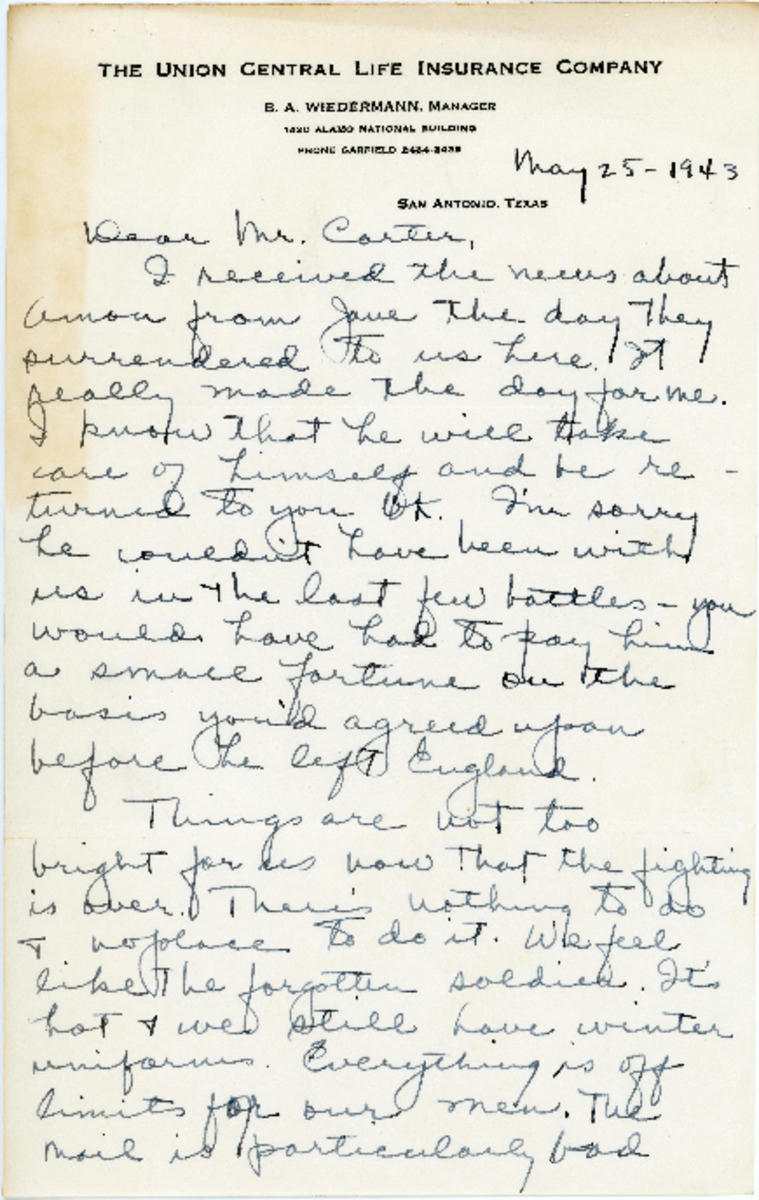 THE UNION CENTRAL LIFE INSURANCE COMPANY
B. A. WIEDERMANN, MANAGER
1420 ALAMO NATIONAL BUILDING
PHONE GARFIELD
May 25 - 1943
SAN ANTONIO, TEXAS
Dear Mr. Carter,
I received the news about
Amon from Jane the day they
surrendered to us here. It
really made the day for me.
I know that he will take
care of himself and be re-
turned to you OK. I'm sorry
he couldn't have been with
us in the last few battles - you
would have had to pay him
a small fortune on the
basis you'd agreed upon
before he left England.
Things are not too
bright for us now that the fighting
is over. There's nothing to do
& no place to do it. We feel
like the forgotten soldier. It's
hot & we still have winter
uniforms. Everything is off
limits for our men. The
mail is particularly bad